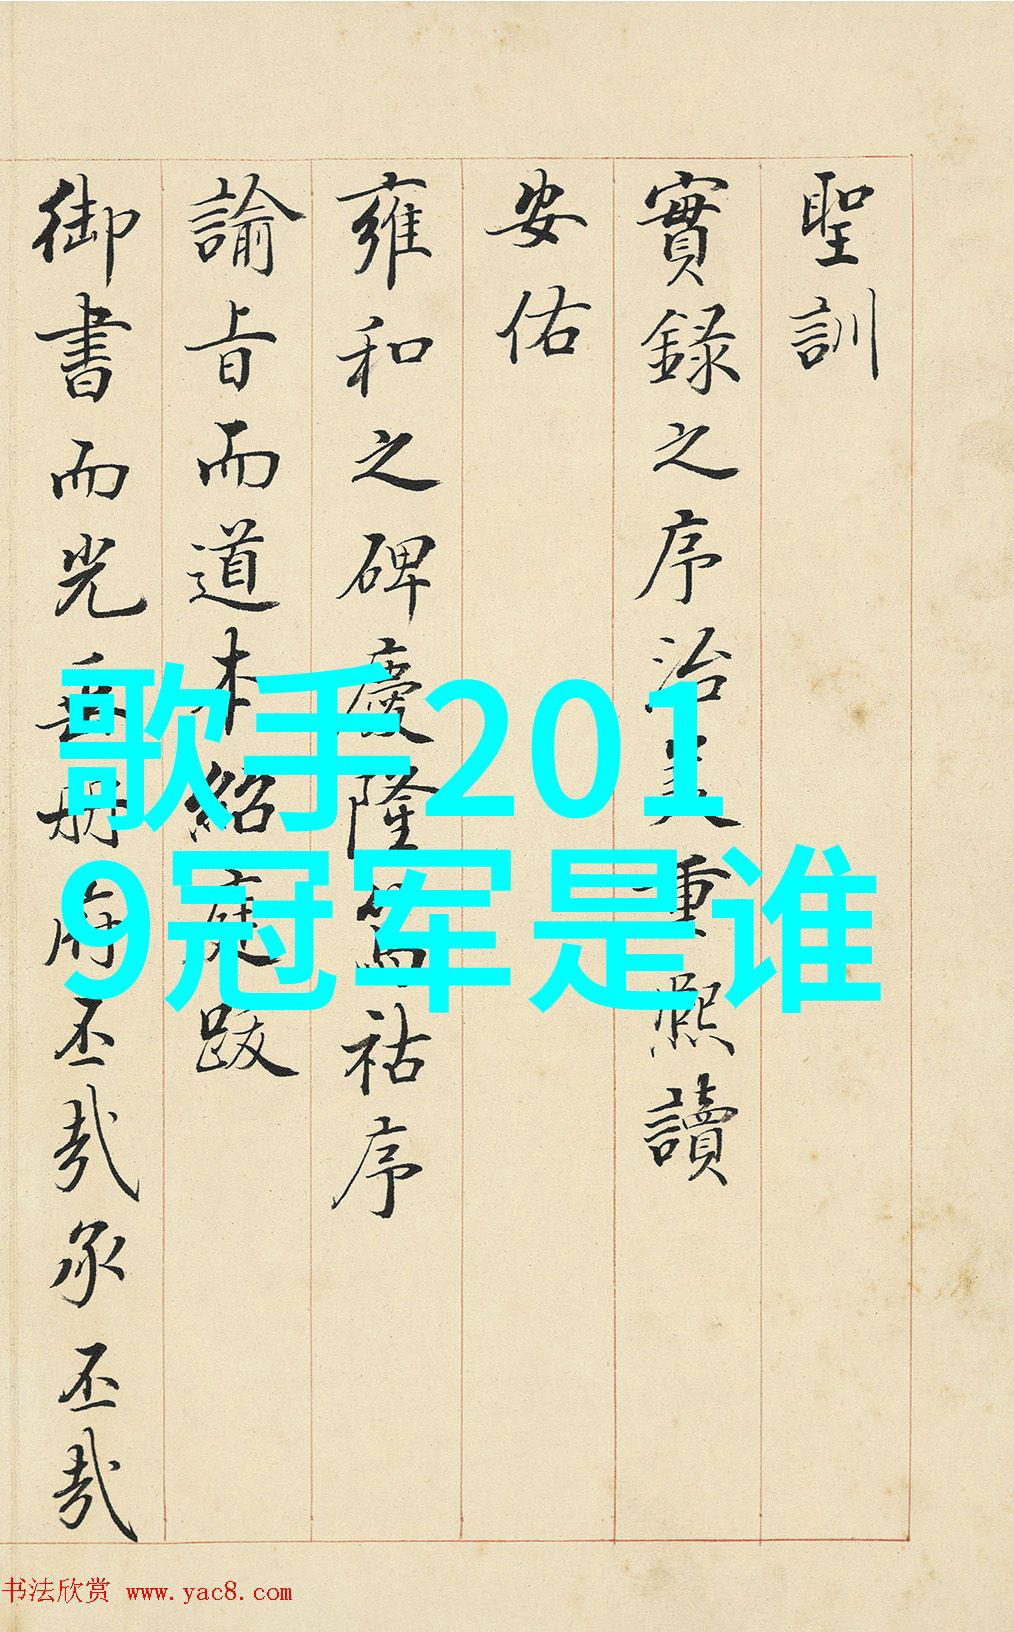 聖訓
實録之序治美重熙讀
安佑
雍和之碑慶隆篤祜序
諭旨而道本紹庭跋
御書而光垂册府丕哉承丕哉
歌手201
9冠军是谁
书法欣赏 www.yac8.com